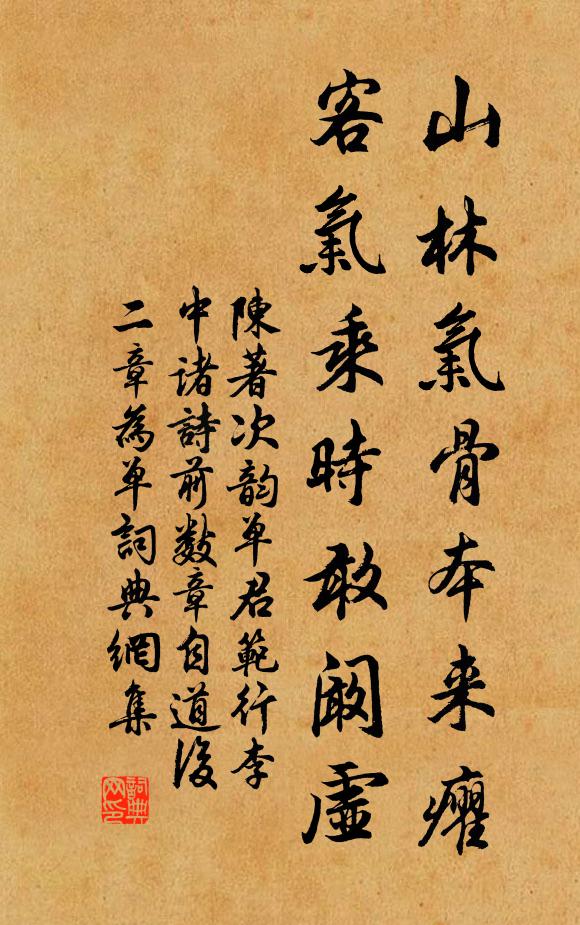 山林氣骨本来癯
客氣乘時敢闞虛
陳著次韵單君範行李
中诸詩前數章自道後
二章為單詞典網集
詞典网印